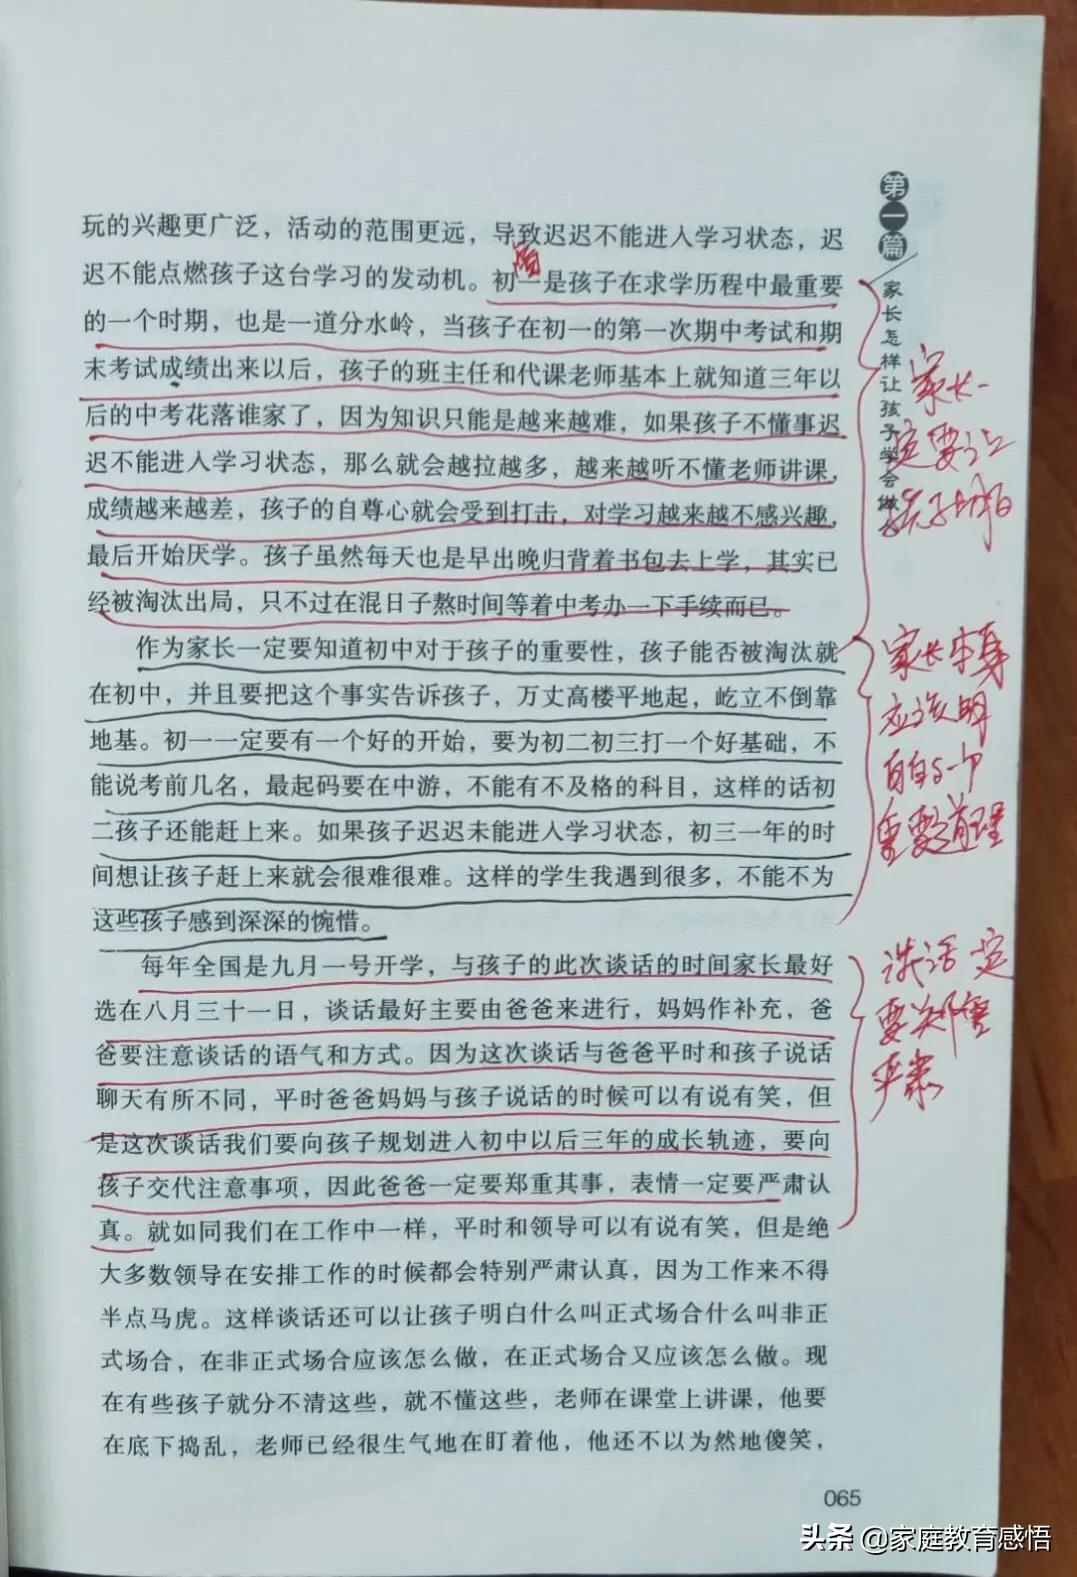 玩的兴趣更广泛，活动的范围更远，导致迟迟不能进入学习状态，迟
迟不能点燃孩子这台学习的发动机。初一是孩子在求学历程中最重要
的一个时期，也是一道分水岭，当孩子在初一的第一次期中考试和期
末考试成绩出来以后，孩子的班主任和代课老师基本上就知道三年以
后的中考花落谁家了，因为知识只能是越来越难，如果孩子不懂事迟
迟不能进入学习状态，那么就会越拉越多，越来越听不懂老师讲课，
成绩越来越差，孩子的自尊心就会受到打击，对学习越来越不感兴趣，
最后开始厌学。孩子虽然每天也是早出晚归背着书包去上学，其实已
经被淘汰出局，只不过在混日子熬时间等着中考办一下手续而已。
作为家长一定要知道初中对于孩子的重要性，孩子能否被淘汰就
在初中，并且要把这个事实告诉孩子，万丈高楼平地起，屹立不倒靠
地基。初一一定要有一个好的开始，要为初二初三打一个好基础，不
能说考前几名，最起码要在中游，不能有不及格的科目，这样的话初
二孩子还能赶上来。如果孩子迟迟未能进入学习状态，初三一年的时
间想让孩子赶上来就会很难很难。这样的学生我遇到很多，不能不为
这些孩子感到深深的惋惜。
每年全国是九月一号开学，与孩子的此次谈话的时间家长最好
选在八月三十一日，谈话最好主要由爸爸来进行，妈妈作补充，爸
爸要注意谈话的语气和方式。因为这次谈话与爸爸平时和孩子说话
聊天有所不同，平时爸爸妈妈与孩子说话的时候可以有说有笑，但
是这次谈话我们要向孩子规划进入初中以后三年的成长轨迹，要向
孩子交代注意事项，因此爸爸一定要郑重其事，表情一定要严肃认
真。就如同我们在工作中一样，平时和领导可以有说有笑，但是绝
大多数领导在安排工作的时候都会特别严肃认真，因为工作来不得
半点马虎。这样谈话还可以让孩子明白什么叫正式场合什么叫非正
式场合，在非正式场合应该怎么做，在正式场合又应该怎么做。现
在有些孩子就分不清这些，就不懂这些，老师在课堂上讲课，他要
在底下捣乱，老师已经很生气地在盯着他，他还不以为然地傻笑，
第一篇
家长怎样让孩子学会做
家长一
定要让
孩子明白
家长本身
应该明
白白一个
重要道理
谈话一定
要郑重
严肃
065
头条 @家庭教育感悟